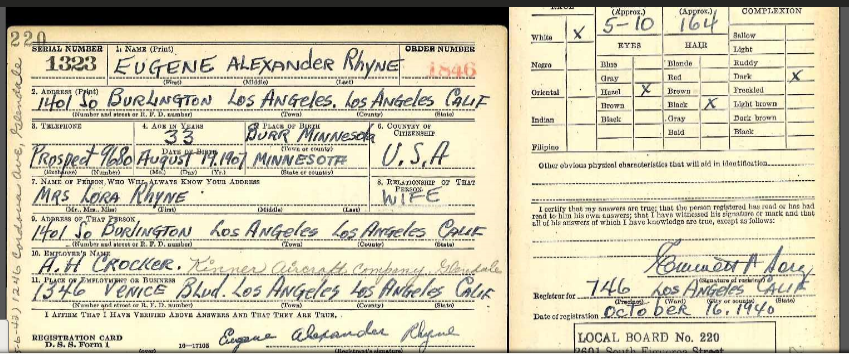 220
SERIAL NUMBER 1. NAME (Print) ORDER NUMBER
1323 EUGENE ALEXANDER RHYNE 1846
(First) (Middle) (Last)
2. ADDRESS (Print)
1401 So BURLINGTON LOS ANGELES. LOS ANGELES CALIF
(Number and street or R. F. D. number) (Town) (County) (State)
3. TELEPHONE 4. AGE IN YEARS 5. PLACE OF BIRTH 6. COUNTRY OF CITIZENSHIP
33 BURR MINNESOTA
DATE OF BIRTH (Town or county)
Prospect 9680 August 19.1907 MINNESOTA U.S.A
(Exchange) (Number) (Mo.) (Day) (Yr.) (State or country)
7. NAME OF PERSON WHO WILL ALWAYS KNOW YOUR ADDRESS 8. RELATIONSHIP OF THAT PERSON
MRS LORA RHYNE WIFE
(Mr., Mrs., Miss) (First) (Middle) (Last)
9. ADDRESS OF THAT PERSON
1401 So BURLINGTON LOS ANGELES LOS ANGELES CALIF
(Number and street or R. F. D. number) (Town) (County) (State)
10. EMPLOYER'S NAME
A. H CROCKER. Kinner Aircraft Company, Glendale
11. PLACE OF EMPLOYMENT OR BUSINESS
1346 VENICE Blvd. LOS ANGELES LOS ANGELES CALIF
(Number and street or R. F. D. number) (Town) (County) (State)
I AFFIRM THAT I HAVE VERIFIED ABOVE ANSWERS AND THAT THEY ARE TRUE.
REGISTRATION CARD
D. S. S. Form 1 16—17105 Eugene Alexander Rhyne
(over) (Registrant's signature)
Ave, Glendale
RACE (Approx.) (Approx.) COMPLEXION
5-10 164
White X Sallow
EYES HAIR Light
Negro Blue Blonde Ruddy
Gray Red Dark X
Oriental Hazel X Brown Freckled
Brown Black X Light brown
Indian Black Gray Dark brown
Bald Black
Filipino
Other obvious physical characteristics that will aid in identification
I certify that my answers are true; that the person registered has read or has had
read to him his own answers; that I have witnessed his signature or mark and that
all of his answers of which I have knowledge are true, except as follows:
(Signature of registrar)
Registrar for 746 LOS ANGELES CALIF
(Precinct) (Ward) (City or county) (State)
Date of registration OCTOBER 16, 1940
LOCAL BOARD No. 220
2601 South Figueroa Street